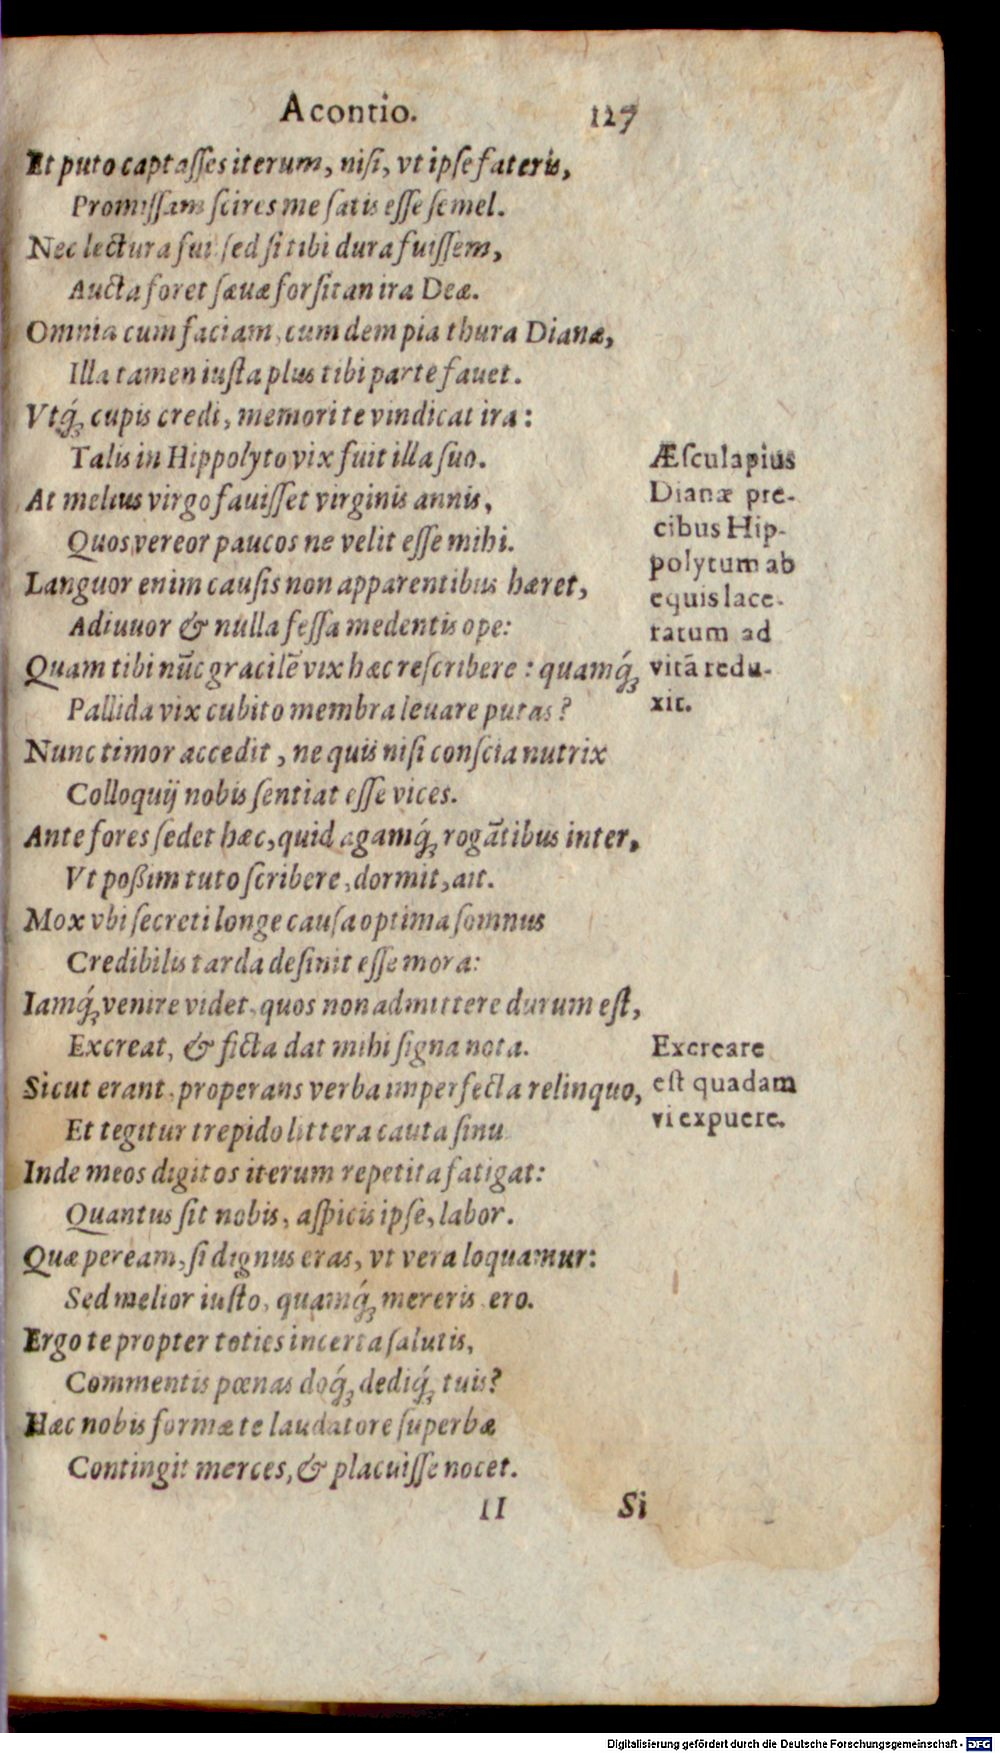 Acontio. 127
Et puto captaſſes iterum, niſi, vt ipſe fateris,
Promiſſam ſcires me ſatis eſſe ſemel.
Nec lectura fui ſed ſi tibi dura fuiſſem,
Aucta foret ſæuæ forſitan ira Deæ.
Omnia cum faciam, cum dem pia thura Dianæ,
Illa tamen iuſta plus tibi parte fauet.
Vtq́; cupis credi, memori te vindicat ira:
Talis in Hippolyto vix fuit illa ſuo.
At melius virgo fauiſſet virginis annis,
Quos vereor paucos ne velit eſſe mihi.
Languor enim cauſis non apparentibus hæret,
Adiuuor & nulla feſſa medentis ope:
Quam tibi nūc gracilē vix hæc reſcribere: quamq́;
Pallida vix cubito membra leuare putas?
Nunc timor accedit, ne quis niſi conſcia nutrix
Colloquij nobis ſentiat eſſe vices.
Ante fores ſedet hæc, quid agamq́; rogātibus inter,
Vt poßim tuto ſcribere, dormit, ait.
Mox vbi ſecreti longe cauſa optima ſomnus
Credibilis tarda deſinit eſſe mora:
Iamq́; venire videt, quos non admittere durum eſt,
Excreat, & ficta dat mihi ſigna nota.
Sicut erant, properans verba imperfecta relinquo,
Et tegitur trepido littera cauta ſinu
Inde meos digitos iterum repetita fatigat:
Quantus ſit nobis, aſpicis ipſe, labor.
Quæ peream, ſi dignus eras, vt vera loquamur:
Sed melior iuſto, quamq́; mereris, ero.
Ergo te propter toties incerta ſalutis,
Commentis pœnas doq́; dediq́; tuis?
Hæc nobis formæ te laudatore ſuperbæ
Contingit merces, & placuiſſe nocet.
Æſculapius
Dianæ pre-
cibus Hip-
polytum ab
equis lace-
ratum ad
vitā redu-
xit.
Excreare
eſt quadam
vi expuere.
II Si
Digitalisierung gefördert durch die Deutsche Forschungsgemeinschaft - DFG